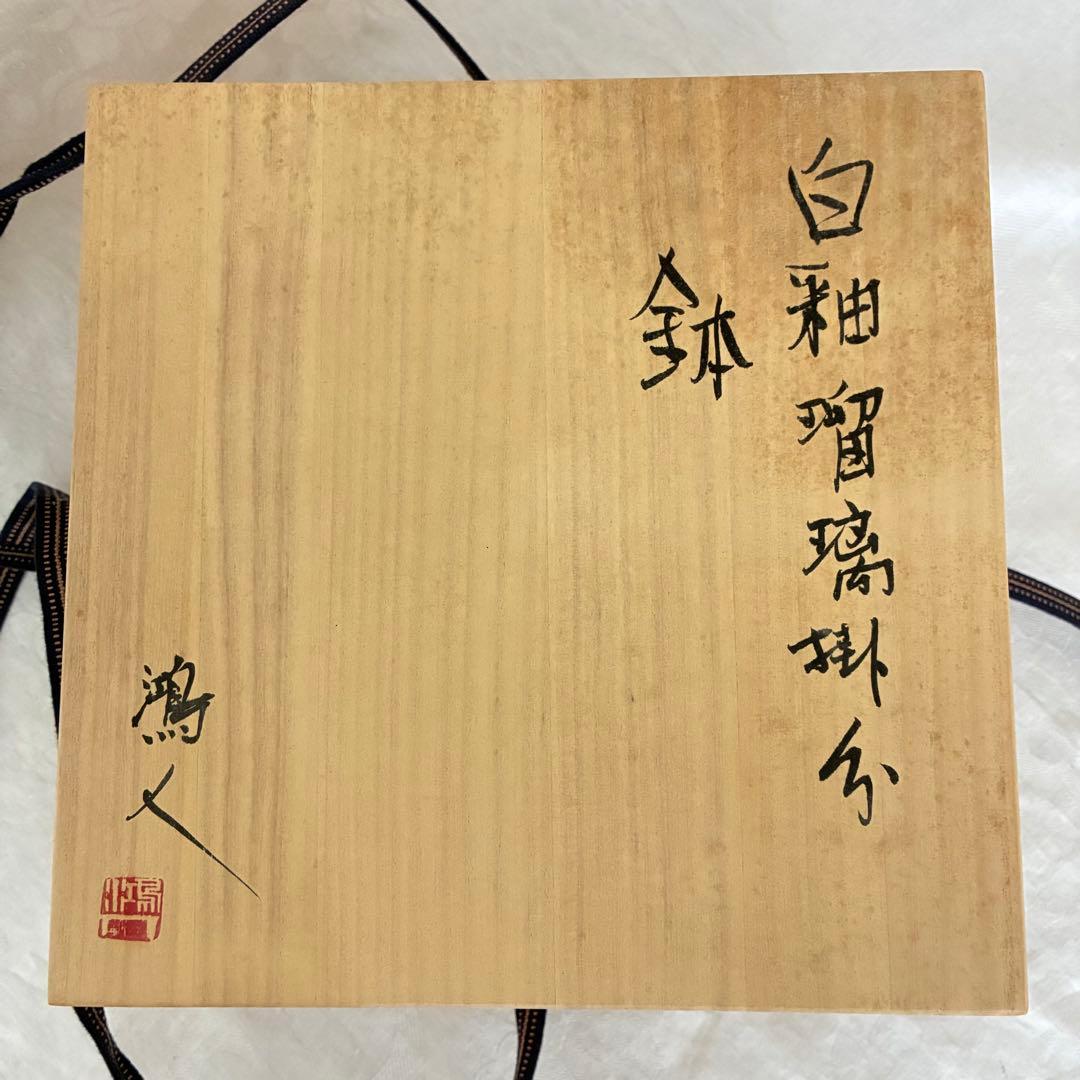 白釉瑠璃掛分
鉢
鴻人